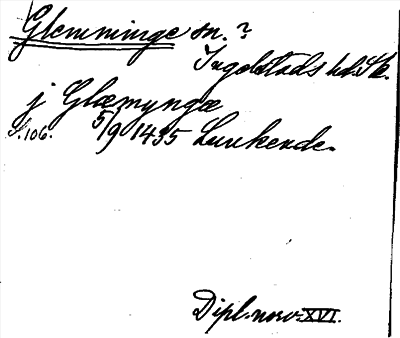 Glemminge sn. ?
Ingelstads hd. Sk.
j Glæmyngæ
S. 106. 5/9 1435 Lunkende.
Dipl. norv. XVI.